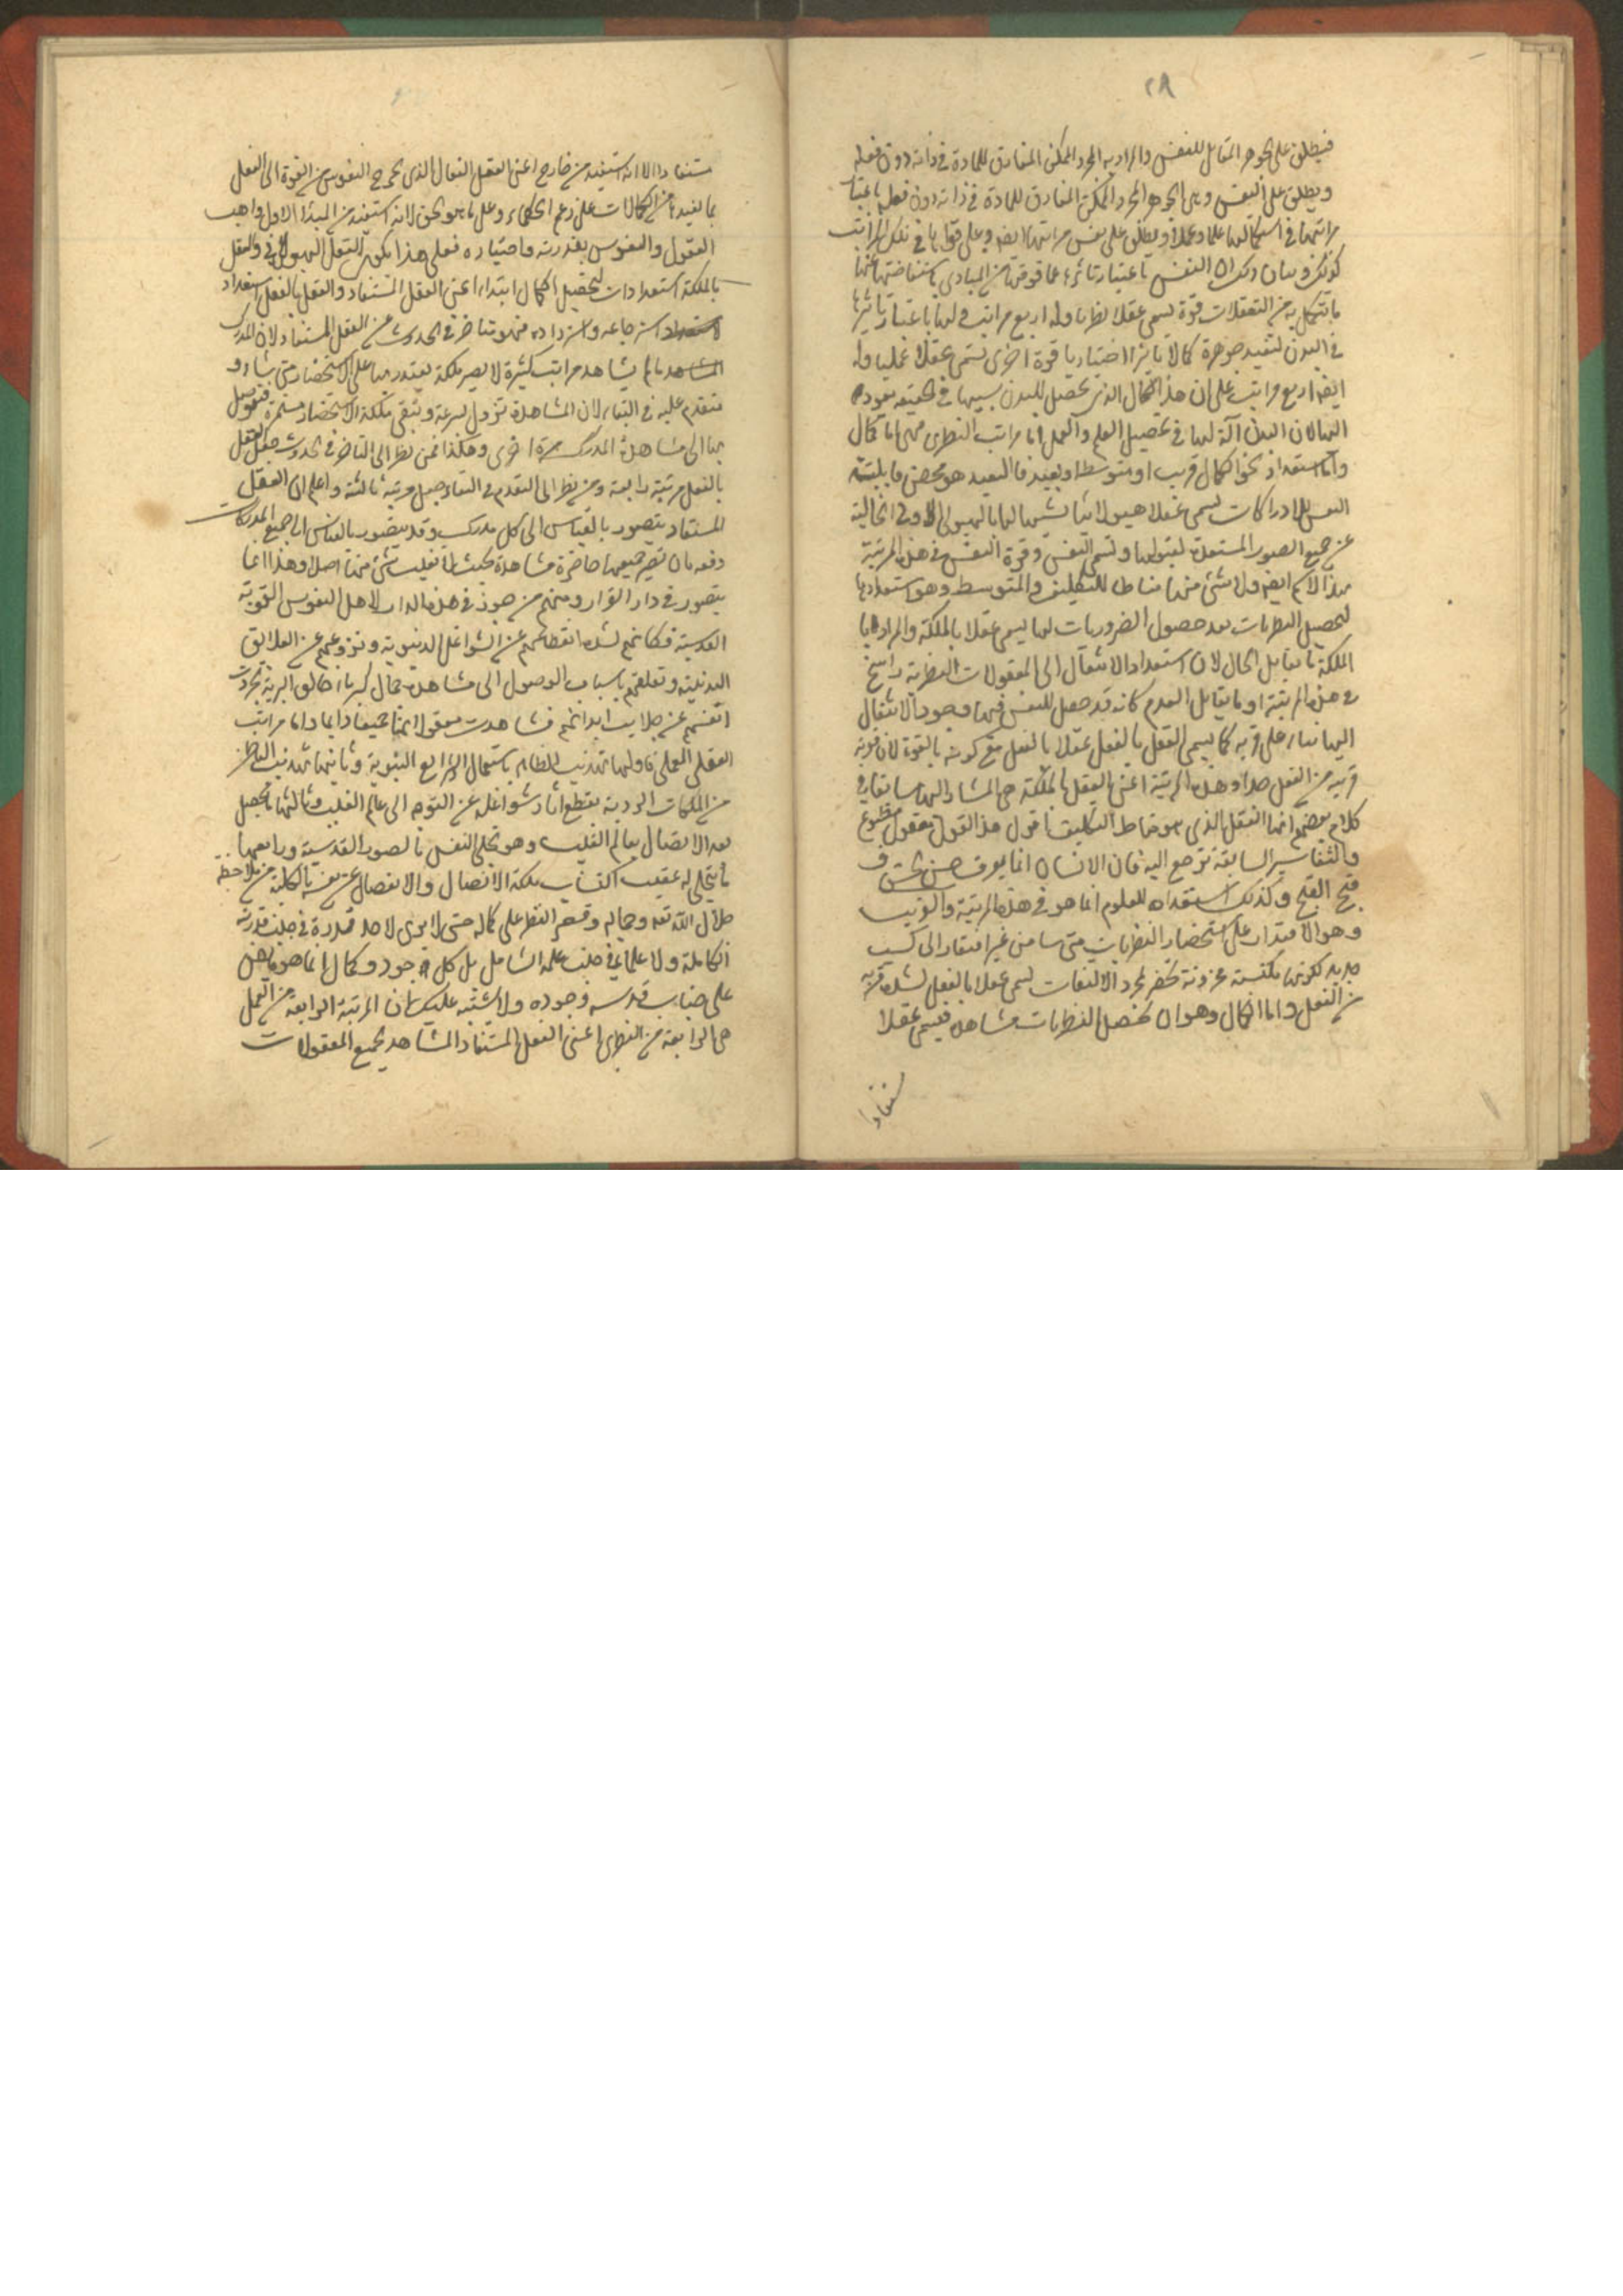 ٢٨
فيطلق على الجوهر المقابل للنفس والمراد به المجرد الممكن المفارق للمادة في ذاته دون فعله
ويطلق على النفس وهي الجوهر المجرد الممكن المفارق للمادة في ذاته دون فعله باعتبار
مراتبها في استكمالها علما وعملا ويطلق على نفس مراتبها ايضا وعلى قواها في تلك المراتب
كذلك وبيان ذلك ان النفس باعتبار تاثرها عما فوقها من المبادي باستفاضتها عنها
ما تتكمل به من التعقلات قوة تسمى عقلا نظريا وله اربع مراتب ولها باعتبار تاثيرها
في البدن لتفيد جوهره كمالا تاثيرا اختياريا قوة اخرى تسمى عقلا عمليا وله
ايضا اربع مراتب على ان هذا الكمال الذي يحصل للبدن بسببها في الحقيقة يعود
اليها لان البدن آلة لها في تحصيل العلم والعمل اما مراتب النظري فهي اما كمال
واما استعداد نحو الكمال قريب او متوسط او بعيد فالبعيد هو محض قابلية
النفس للادراكات تسمى عقلا هيولانيا تشبيها لها بالهيولى الاولى الخالية
عن جميع الصور المستعدة لقبولها وتسمى النفس وقوة النفس في هذه المرتبة
بهذا الاسم ايضا ولا شئ منها مناط للتكليف والمتوسط وهو استعدادها
لتحصيل النظريات بعد حصول الضروريات لها يسمى عقلا بالملكة والمراد با
الملكة ما يقابل الحال لان استعداد الانتقال الى المعقولات النظرية راسخ
في هذه المرتبة او ما يقابل العدم كانه قد حصل للنفس فيها وجود الانتقال
اليها بناء على قربه كما يسمى العقل بالفعل عقلا بالفعل مع كونه بالقوة لان قوته
قريبة من الفعل جدا وهذه المرتبة اعني العقل بالملكة هي المشار اليها سابقا في
كلام بعضهم انها العقل الذي هو مناط التكليف اقول هذا القول معقول مطبوع
والتفاسير السابقة ترجع اليه فان الانسان انما يعرف حسن الحسن و
قبح القبح وكذلك استعداده للعلوم انما هو في هذه المرتبة والقريب
وهو الاقتدار على استحضار النظريات متى شاء من غير افتقار الى كسب
جديد لكونها مكتسبة مخزونة تحضر بمجرد الالتفات تسمى عقلا بالفعل لشدة قربه
من الفعل واما الكمال وهو ان تحصل النظريات مشاهدة فيسمى عقلا
مستفادا
مستفادا الا انه استفيد من خارج اعني العقل الفعال الذي يخرج النفوس من القوة الى الفعل
بما تفيدها من الكمالات على زعم الحكماء وعلى ما هو الحق لانه استفيد من المبدأ الاول واهب
العقول والنفوس بقدرته واختياره فعلى هذا يكون العقل الهيولاني والعقل
بالملكة استعدادات لتحصيل الكمال ابتداء اعني العقل المستفاد والعقل بالفعل استعداد
استرجاعه واسترداده فهو متاخر في الحدوث عن العقل المستفاد لان المدرك
ما لم يشاهد مراتب كثيرة لا يصير ملكة يقتدر بها على الاستحضار متى شاء و
متقدم عليه في البقاء لان المشاهدة تزول بسرعة وتبقى ملكة الاستحضار مستمرة فيتوسل
بها الى مشاهدة المدرك مرة اخرى وهكذا فمن نظر الى التاخر في الحدوث جعل العقل
بالفعل مرتبة رابعة ومن نظر الى التقدم في البقاء جعل مرتبة ثالثة واعلم ان العقل
المستفاد يتصور بالقياس الى كل مدرك وقد يتصور بالقياس الى جميع المدركات
دفعة بان تصير جميعها حاضرة مشاهدة بحيث لا تغيب شئ منها اصلا وهذا انما
يتصور في دار القرار ومنهم من جوز في هذه الدار لاهل النفوس القوية
القدسية فكانهم لشدة انقطاعهم عن الشواغل الدنيوية ونزوعهم عن العلائق
البدنية وتعلقهم باسباب الوصول الى مشاهدة جمال كبرياء خالق البرية تجردت
انفسهم عن جلابيب ابدانهم فشاهدت معقولاتها جميعا دايما واما مراتب
العقل العملي فاولها تهذيب الظاهر باستعمال الشرايع النبوية وثانيها تهذيب الباطن
من الملكات الردية بقطع آثار شواغله عن التوجه الى عالم الغيب وثالثها ما يحصل
بعد الاتصال بعالم الغيب وهو تحلي النفس بالصور القدسية ورابعها
ما يتجلى له عقيب اكتساب ملكة الاتصال والانفصال عن نفسه بالكلية من ملاحظة
جلال الله تعه وجماله وقصر النظر على كماله حتى لا يرى لاحد قدرة في جنب قدرته
الكاملة ولا علما في جنب علمه الشامل بل كل وجود وكمال انما هو فايض
على جناب قدسه وجوده ولا يشتبه عليك ان المرتبة الرابعة من العمل
هي الرابعة من النظري اعني العقل المستفاد المشاهد بجميع المعقولات